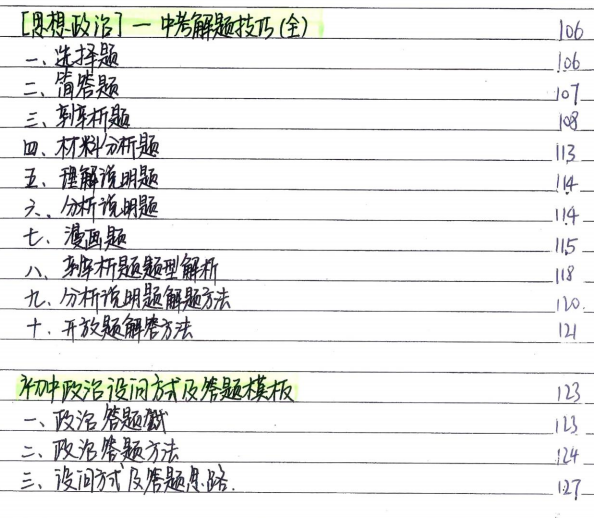 [思想政治]—中考解题技巧(全) 106
一、选择题 106
二、简答题 107
三、辨析题 108
四、材料分析题 113
五、理解说明题 114
六、分析说明题 114
七、漫画题 115
八、辨析题题型解析 118
九、分析说明题解题方法 120
十、开放题解答方法 121
初中政治设问方式及答题模板 123
一、政治答题 123
二、政治答题方法 124
三、设问方式及答题思路. 127